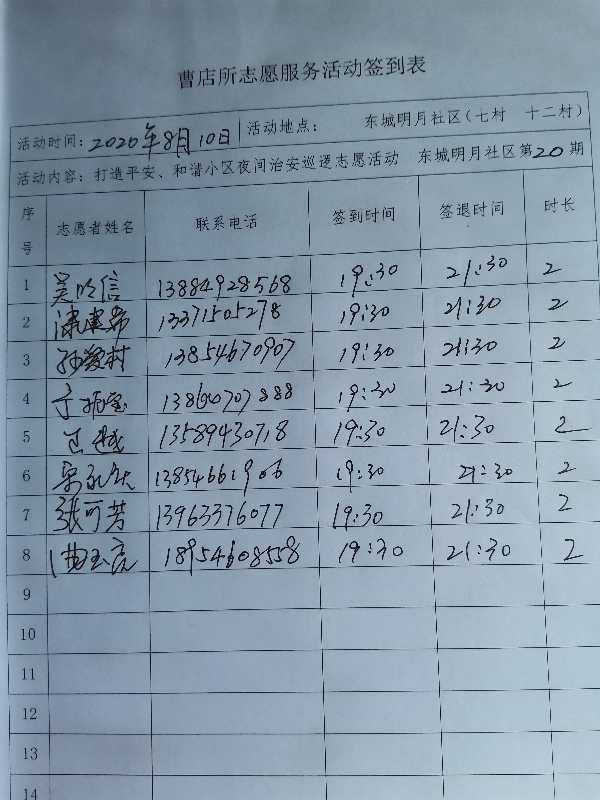 曹店所志愿服务活动签到表
活动时间：2020年8月10日 活动地点： 东城明月社区（七村 十二村）
活动内容：打造平安、和谐小区夜间治安巡逻志愿活动 东城明月社区第20期
序号 志愿者姓名 联系电话 签到时间 签退时间 时长
1 吴 信 13884928568 19:30 21:30 2
2 13371505278 19:30 21:30 2
3 孙爱村 13854670907 19:30 21:30 2
4 于 宝 19:30 21:30 2
5 越 13589430718 19:30 21:30 2
6 宋永 13854661906 19:30 21:30 2
7 张可芳 13963376077 19:30 21:30 2
8 玉亮 18954608558 19:30 21:30 2
9
10
11
12
13
14